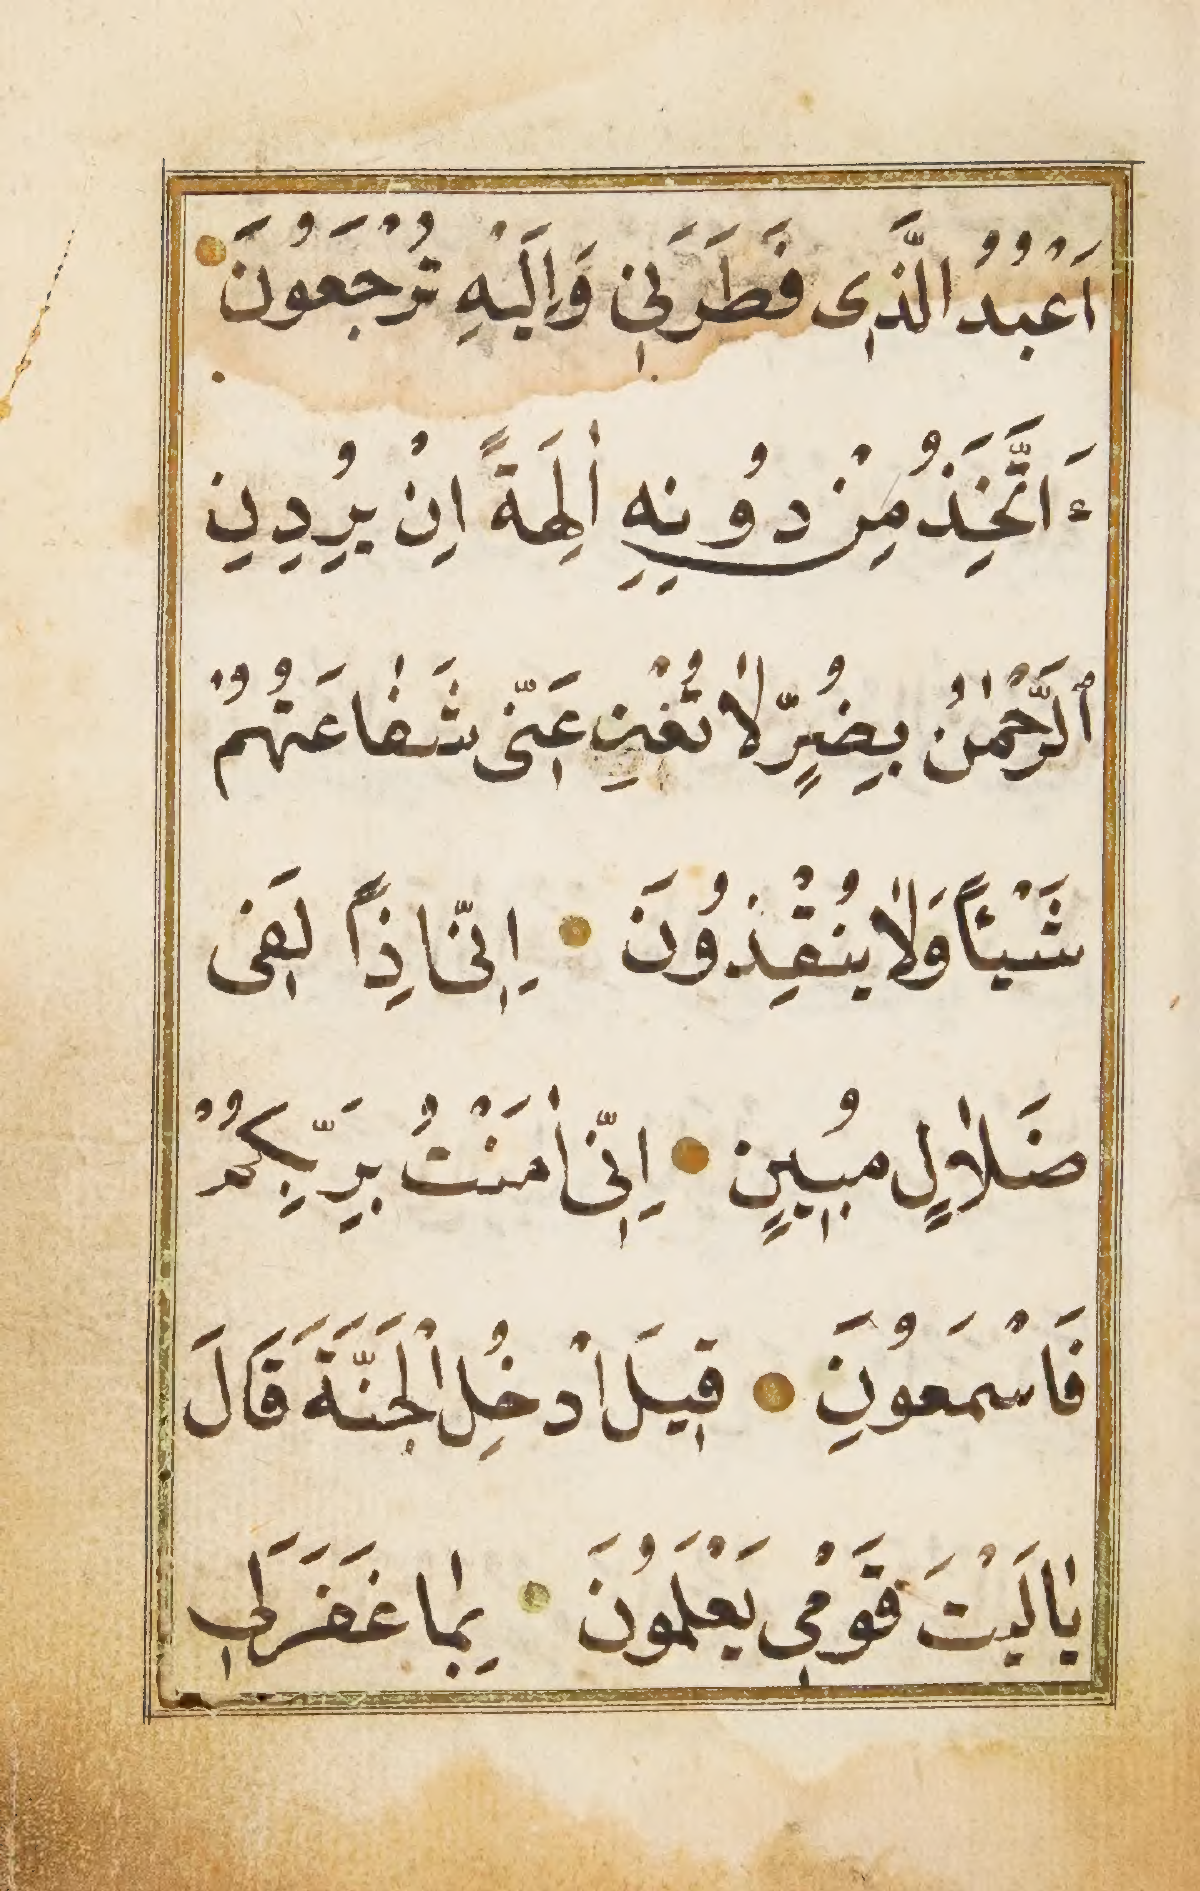 اَعْبُدُ الَّذٖى فَطَرَنٖى وَاِلَيْهِ تُرْجَعُونَ
ءَاَتَّخِذُ مِنْ دُونِهٖ اٰلِهَةً اِنْ يُرِدْنِ
الرَّحْمٰنُ بِضُرٍّ لَا تُغْنِ عَنّٖى شَفَاعَتُهُمْ
شَيْئًا وَلَا يُنْقِذُونَ اِنّٖى اِذًا لَفٖى
ضَلَالٍ مُبٖينٍ اِنّٖى اٰمَنْتُ بِرَبِّكُمْ
فَاسْمَعُونِ قٖيلَ ادْخُلِ الْجَنَّةَ قَالَ
يَا لَيْتَ قَوْمٖى يَعْلَمُونَ بِمَا غَفَرَ لٖى